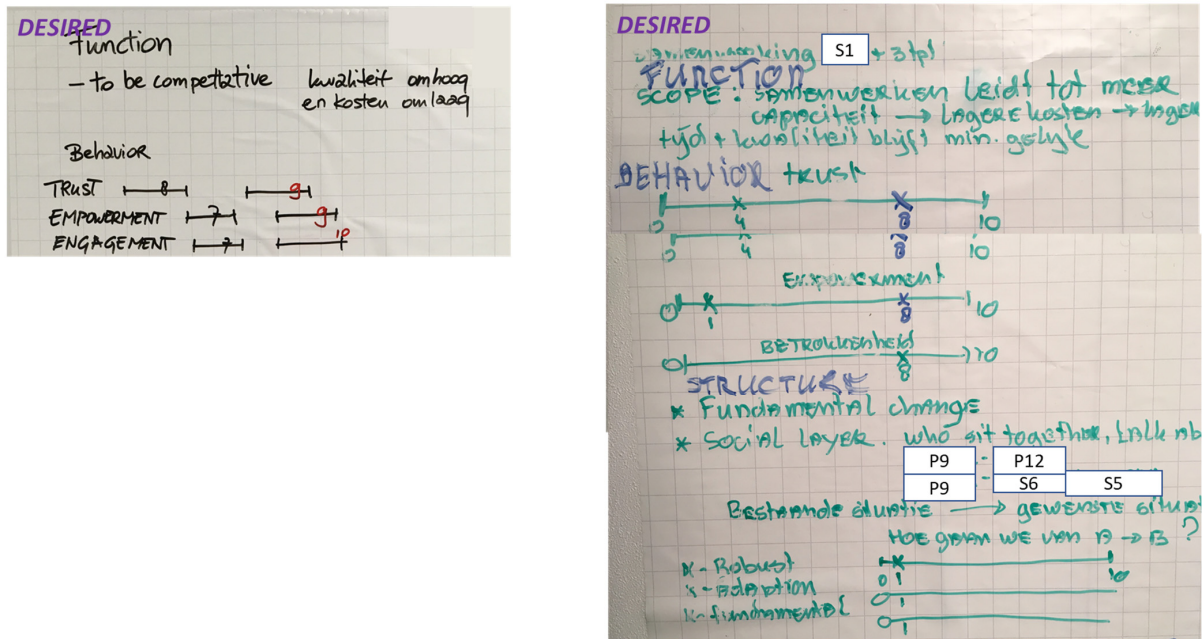 DESIRED
Function
- to be compettative kwaliteit omhoog
en kosten omlaag
Behavior
TRUST 8 9
EMPOWERMENT 7 9
ENGAGEMENT 7 10
DESIRED
samenwerking S1 + 3tpl
FUNCTION
SCOPE: SAMENWERKEN leidt tot meer
capaciteit → LAGERE kosten → lager
tijd + kwaliteit blijft min. gelijk
BEHAVIOR trust
0 4 8 10
0 4 8 10
Empowerment
0 1 8 10
BETROKKENHEID
0 8 10
STRUCTURE
* Fundamental change
* SOCIAL LAYER. who sit together, talk ab
P9 - P12
P9 - S6 S5
Bestaande situatie → gewenste situat
HOE gaan we van A → B ?
x - Robust
0 1 10
x - adaption
0 1
x - fundamental
0 1